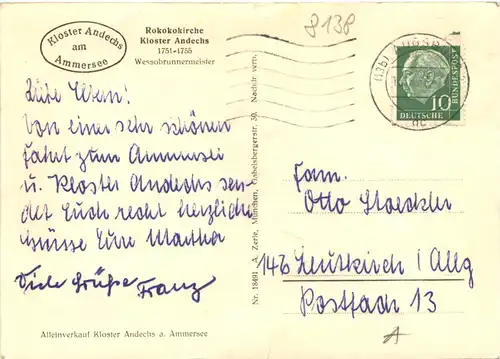 Kloster Andechs
am
Ammersee
Rokokokirche
Kloster Andechs
1751-1755
Wessobrunnermeister
8138
Liebe Eltern!
Von einer sehr schönen
Fahrt zum Ammersee
u. Kloster Andechs sen-
det Euch recht herzliche
Grüsse Eure Martha
Viele Grüße Franz
Alleinverkauf Kloster Andechs a. Ammersee
Nr. 18491 A. Zerle, München, Gabelsbergerstr. 30. Nachdr. verb.
(13b)
10
DEUTSCHE
BUNDESPOST
Fam.
Otto Stoeckler
14b Leutkirch / Allg
Postfach 13